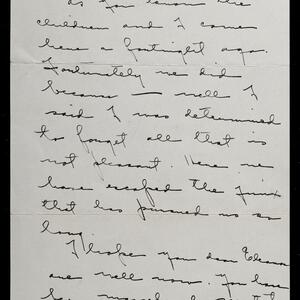 as you know the
children and I came
here a fortnight ago.
Fortunately we did
because — well I
said I was determined
to forget all that is
not pleasant. Here we
have escaped the jinx
that has pursued us so
long.
I hope you dear
are well now. You have
been